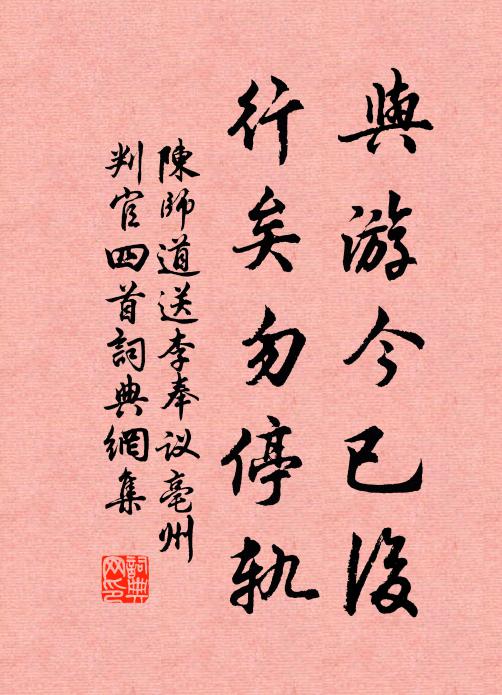 與游今已後
行矣勿停軌
陳師道送李奉议亳州
判官四首詞典網集
詞典網印